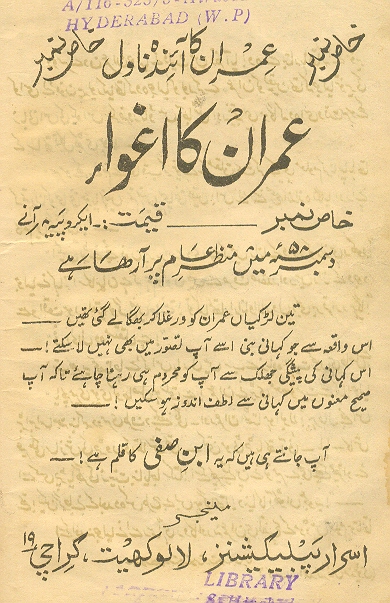 HYDERABAD (W.P)
خاص نمبر عمران کا آئندہ ناول خاص نمبر
عمران کا اغوا
خاص نمبر ـــــــــ قیمت:۔ ایکروپیہ ۴ر آنے
دسمبر ۵۸ئہ میں منظرِ عام پر آرھا ہے
تین لڑکیاں عمران کو ورغلا کر بھگا لے گئی تھیں ــــ
اس واقعہ سے جو کہانی بنی اسے آپ تصّور میں بھی نہیں لا سکتے! ــــ
اس کہانی کی پیشگی جھلک سے آپ کو محروم ہی رہنا چاہئے تاکہ آپ
صحیح معنوں میں کہانی سے لطف اندوز ہو سکیں! ــــ
آپ جانتے ہی ہیں کہ یہ ابن صفی کا قلم ہے! ــــ
مینجر
اسرار پبلیکیشنز، لالوکھیت، کراچی ۱۹
LIBRARY